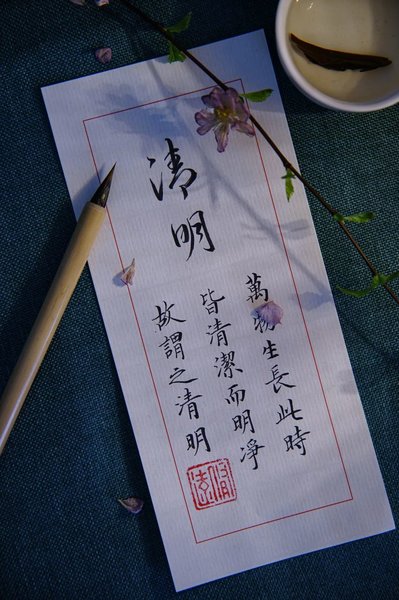 清明
萬物生長此時
皆清潔而明淨
故謂之清明